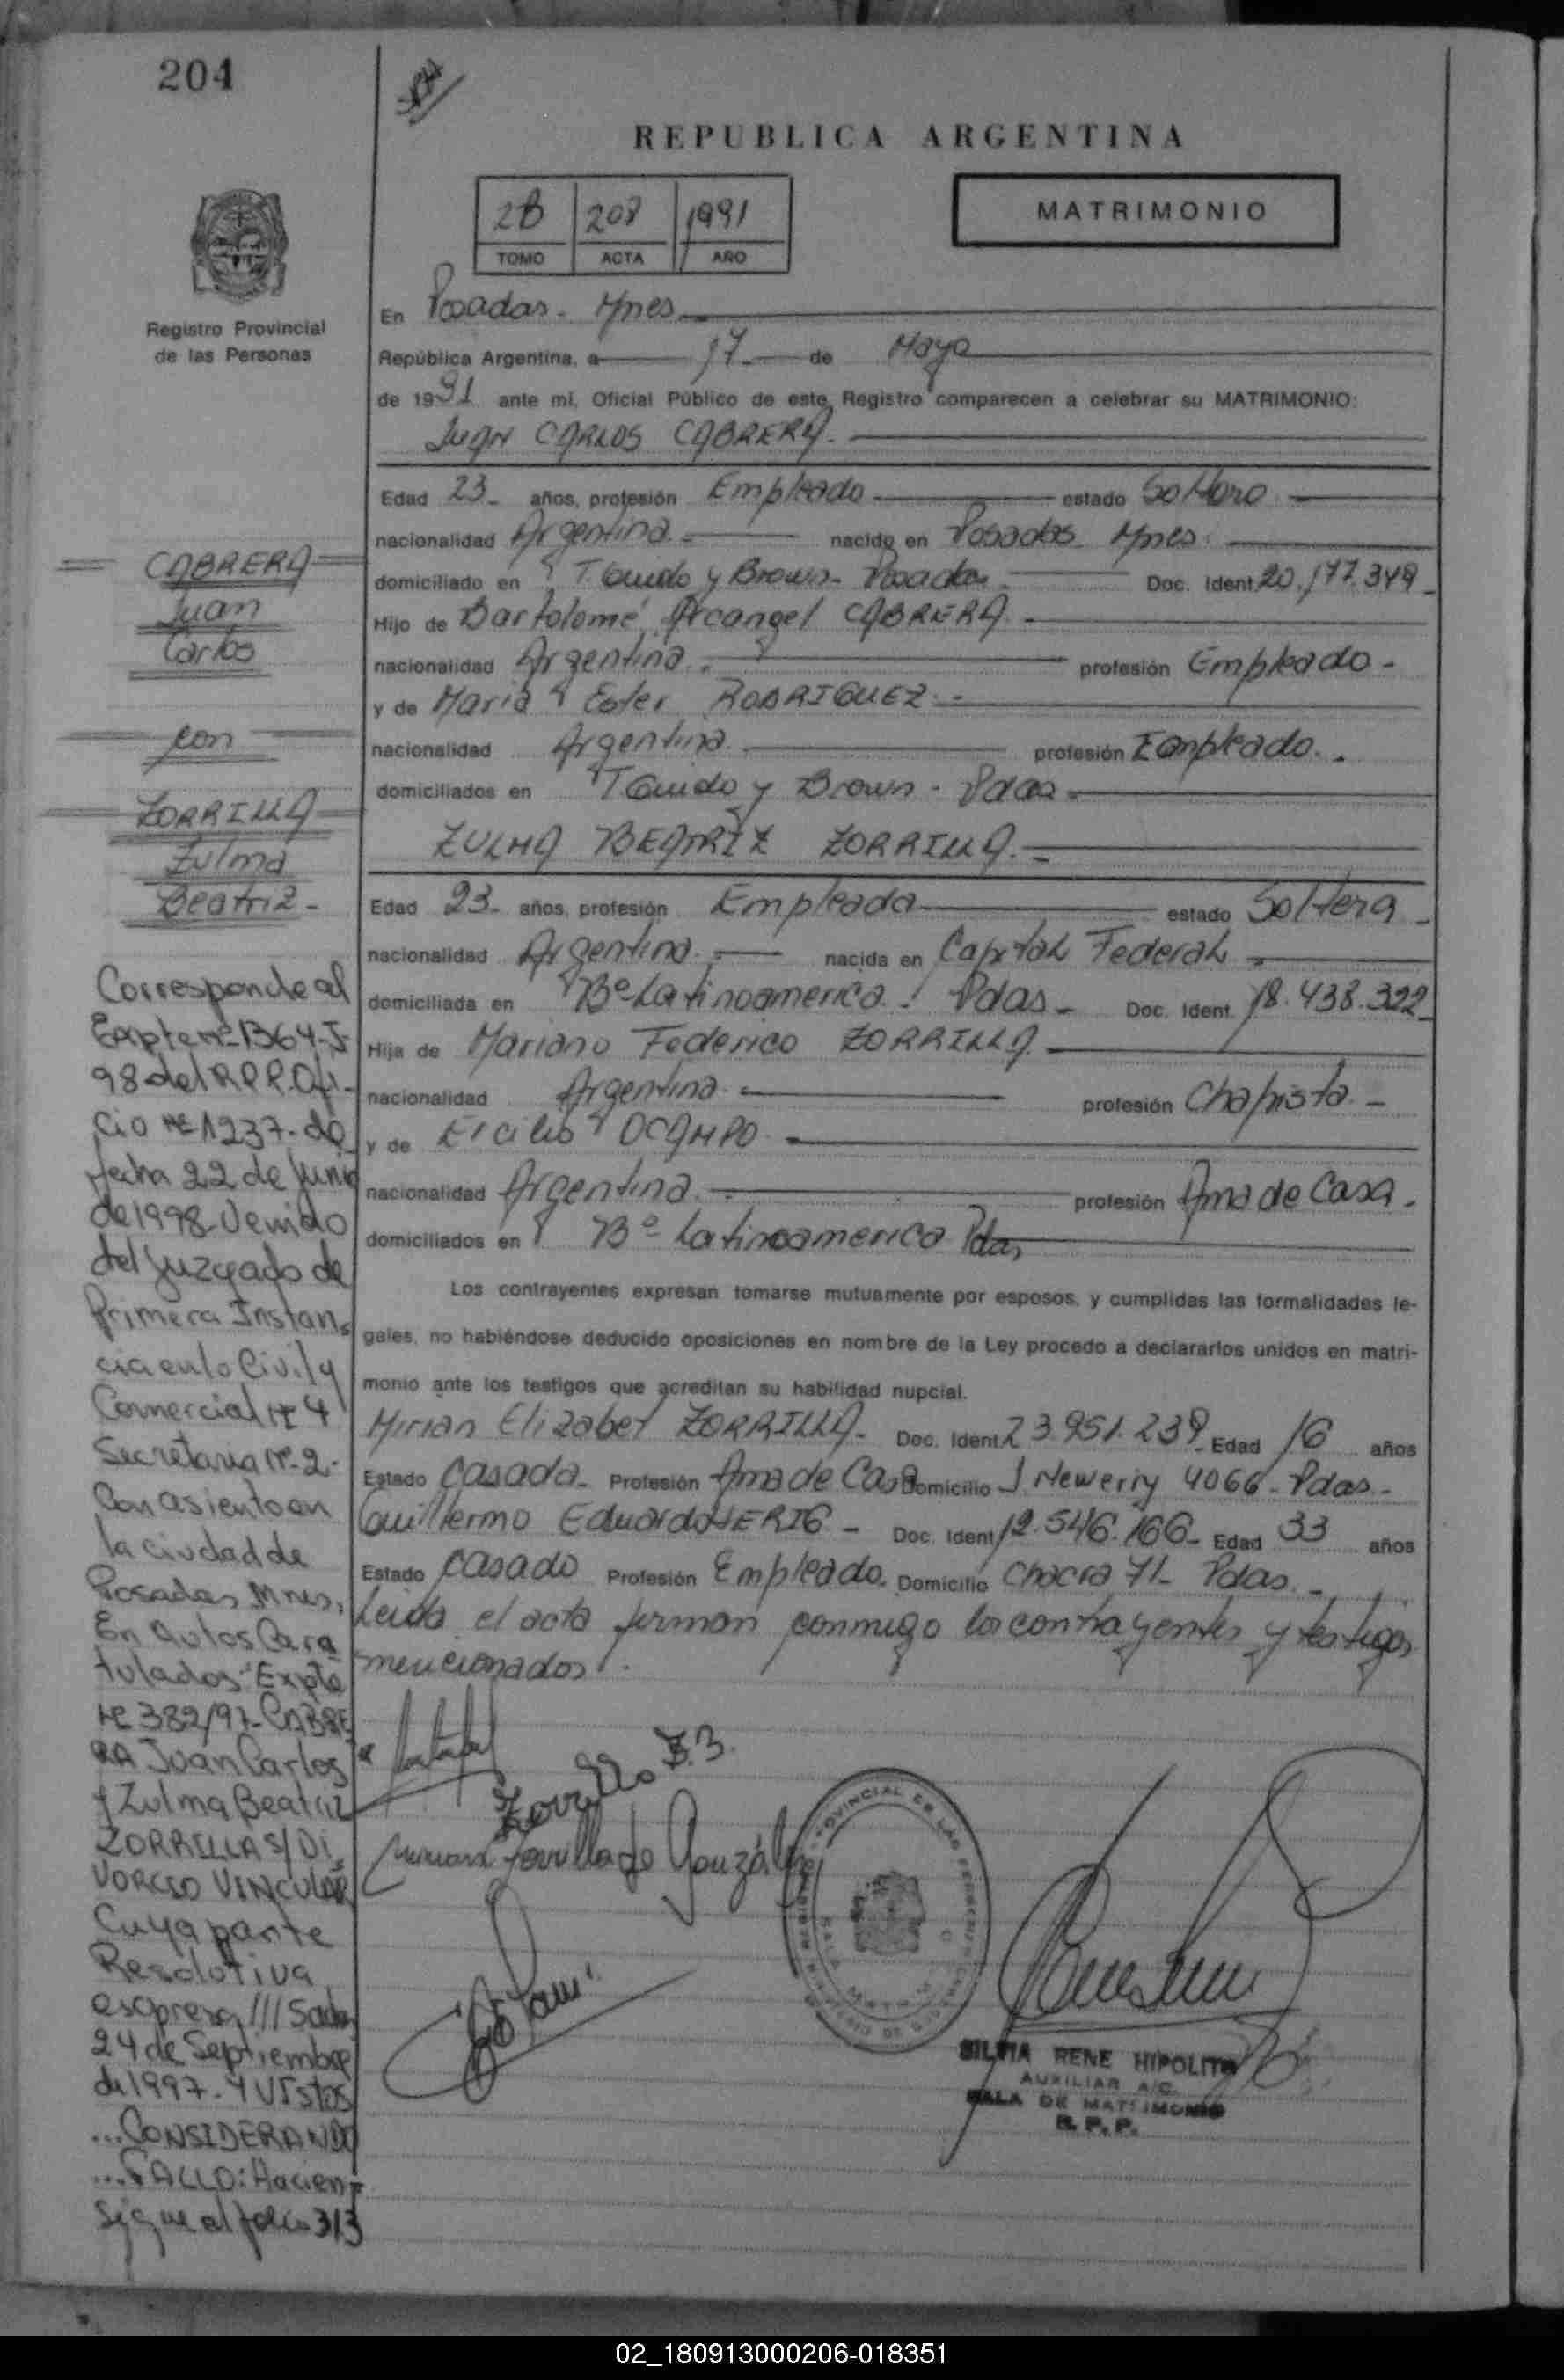 204
REPUBLICA ARGENTINA
2B 208 1991
TOMO ACTA AÑO
MATRIMONIO
Registro Provincial
de las Personas
En Posadas - Mnes
República Argentina, a 17 de Mayo
de 1991 ante mí, Oficial Público de este Registro comparecen a celebrar su MATRIMONIO:
JUAN CARLOS CABRERA.
Edad 23 años, profesión Empleado estado Soltero
nacionalidad Argentina nacido en Posadas Mnes
domiciliado en T. Guido y Brown - Posadas Doc. Ident. 20.177.349
Hijo de Bartolomé Arcangel CABRERA
nacionalidad Argentina profesión Empleado
y de Maria Ester RODRIGUEZ
nacionalidad Argentina profesión Empleado.
domiciliados en T Guido y Brown - Pdas
ZULMA BEATRIZ ZORRILLA.
Edad 23 años, profesión Empleada estado Soltera
nacionalidad Argentina nacida en Capital Federal
domiciliada en Bº Latinoamerica. Pdas Doc. Ident. 18.438.322
Hija de Mariano Federico ZORRILLA
nacionalidad Argentina profesión Chapista
y de Ercilia OCAMPO
nacionalidad Argentina profesión Ama de Casa.
domiciliados en Bº Latinoamerica Pdas
Los contrayentes expresan tomarse mutuamente por esposos, y cumplidas las formalidades le-
gales, no habiéndose deducido oposiciones en nombre de la Ley procedo a declararlos unidos en matri-
monio ante los testigos que acreditan su habilidad nupcial.
Mirian Elizabet ZORRILLA. Doc. Ident. 23.951.239 Edad 16 años
Estado Casada Profesión Ama de Casa Domicilio J Newerry 4066 - Pdas.
Guillermo Eduardo Doc. Ident. 12.546.166 Edad 33 años
Estado Casado Profesión Empleado. Domicilio Chacra 71 - Pdas.
Leida el acta firman conmigo los contrayentes y testigos
mencionados.
Zorrilla Z.B.
Miriam Zorrilla de González
SILVIA RENE HIPOLITO
AUXILIAR A/C.
SALA DE MATRIMONIO
R. P. P.
CABRERA
Juan
Carlos
con
ZORRILLA
Zulma
Beatriz -
Corresponde al
Expte nº 1364-J-
98 del R.P.P. Ofi-
cio Nº 1237- de
fecha 22 de Junio
de 1998 - Venido
del Juzgado de
Primera Instan-
cia en lo Civil y
Comercial Nº 4
Secretaria Nº 2 -
Con asiento en
la ciudad de
Posadas Mnes,
En Autos Cara
tulados: "Expte
Nº 382/97 - CABRE
RA Juan Carlos
y Zulma Beatriz
ZORRILLA S/ DI
VORCIO VINCULAR
Cuya parte
Resolutiva
expresa ///Sadas,
24 de Septiembre
de 1997 - Y VIstos
...CONSIDERANDO
...FALLO: Hacien-
Sigue al folio 313
02_180913000206-018351